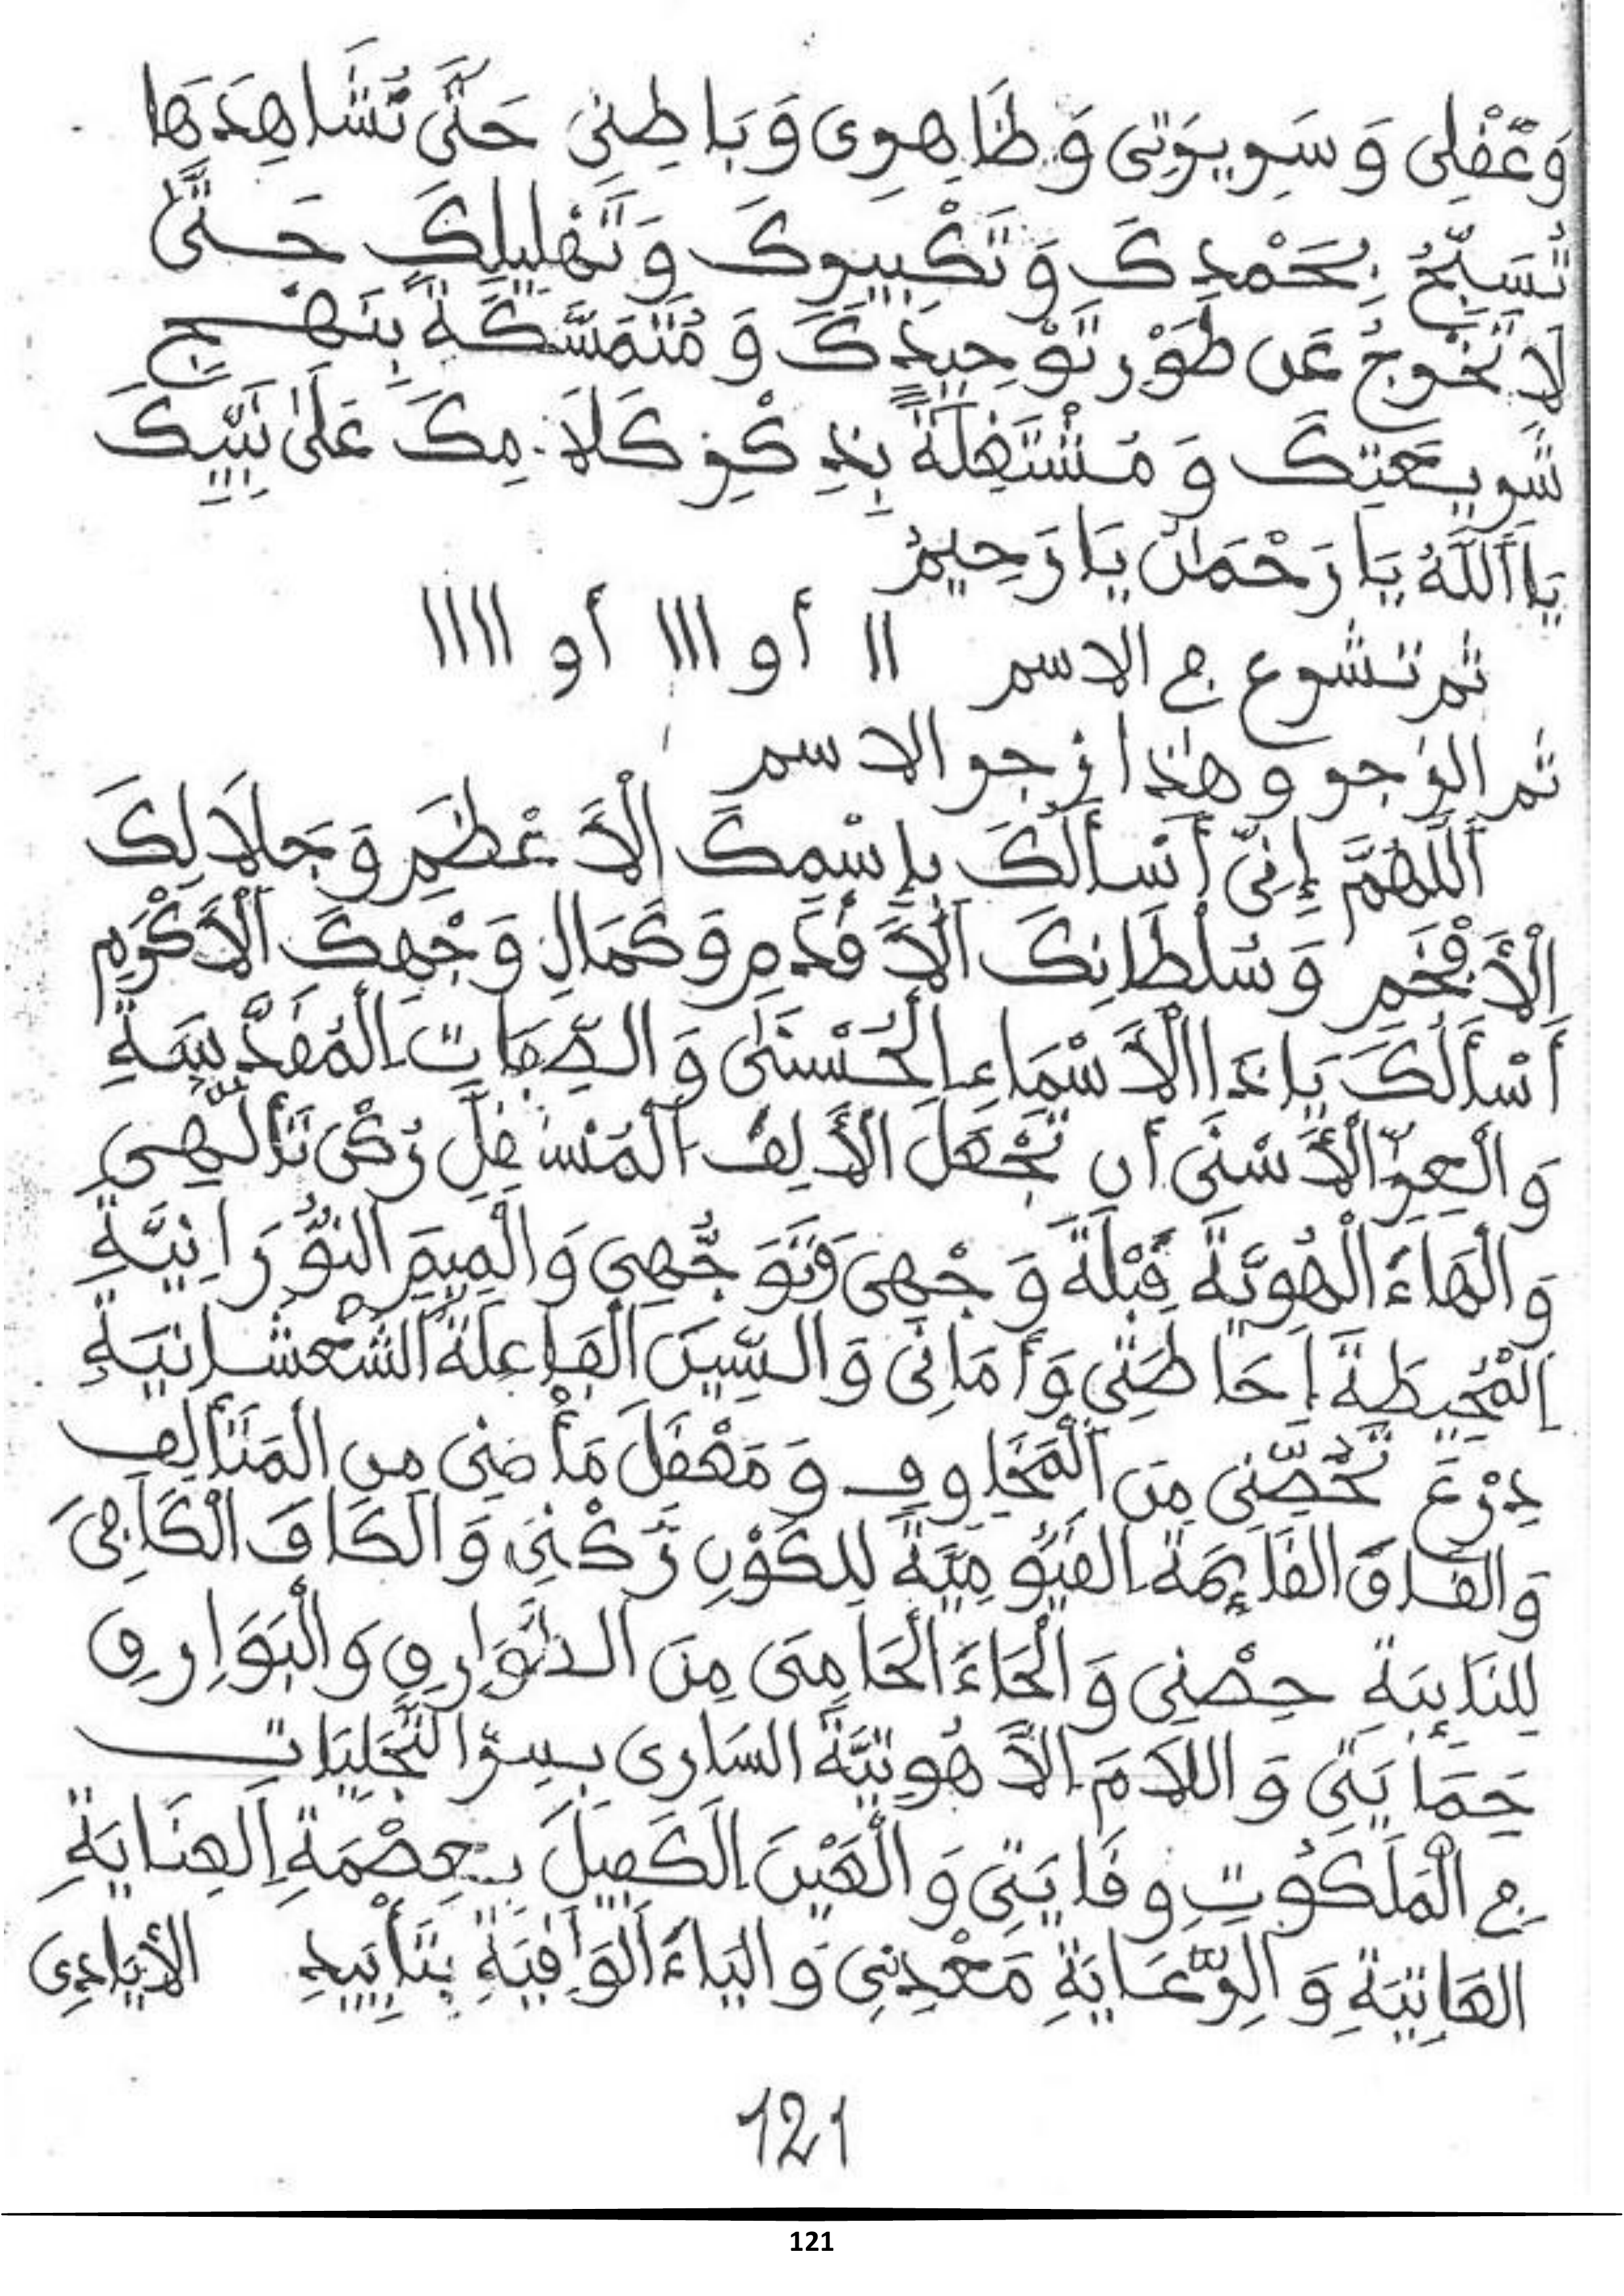 وَعَقْلِى وَسَرِيرَتِى وَظَاهِرِى وَبَاطِنِى حَتَّى تُشَاهِدَهَا
تُسَبِّحُ بِحَمْدِكَ وَتَكْبِيرِكَ وَتَهْلِيلِكَ حَتَّى
لَا تَخْرُجُ عَن طَوْرِ تَوْحِيدِكَ وَمُتَمَسِّكَةً بِنَهْجِ
شَرِيعَتِكَ وَمُشْتَغِلَةً بِذِكْرِ كَلَامِكَ عَلَىٰ نَبِيِّكَ
يَا أَللَّهُ يَا رَحْمَٰنُ يَا رَحِيمُ
ثم تشرع ج الاسم ١١ أو ١١١ أو ١١١١
ثم الزجر وهٰذا زجر الاسم
أَللَّهُمَّ إِنِّى أَسْأَلُكَ بِإِسْمِكَ الْأَعْظَمِ وَجَلَالِكَ
الْأَفْخَمِ وَسُلْطَانِكَ الْأَقْدَمِ وَكَمَالِ وَجْهِكَ الْأَكْرَمِ
أَسْأَلُكَ يَا ذَا الْأَسْمَاءِ الْحُسْنَىٰ وَالصِّفَاتِ الْمُقَدَّسَةِ
وَالْعِزِّ الْأَسْنَى أن تَجْعَلَ الْأَلِفَ الْمُسْتَقِلَّ رُكْنَ تَأَلُّهِى
وَالْهَاءَ الْهُوِيَّةَ قِبْلَةَ وَجْهِى وَتَوَجُّهِى وَالْمِيمَ النُّورَانِيَّةِ
الْمُحِيطَةَ إِحَاطَتِى وَأَمَانِى وَالسِّينَ الْفَاعِلَةَ الشَّعْشَانِيَةِ
دِرْعَ تَحَصُّنِى مِنَ الْمَخَاوِفِ وَمَعْقَلَ مَأْمَنِى مِن الْمَتَألِف
وَالْقَافَ الْقَائِمَةَ الْقَيُّومِيَّةَ لِلْكَوْنِ رُكْنِى وَالْكَافَ الْكَافِىَ
لِلنَّائِبَةِ حِصْنِى وَالْحَاءَ الْحَامِىَ مِنَ الطَّوَارِقِ وَالْبَوَارِقِ
حِمَايَتِى وَاللَّامَ الْأَهُوتِيَّةَ السَّارِى بِسِرِّ التَّجَلِّيَاتِ
ج الْمَلَكُوتِ وِقَايَتِى وَالْعَيْنَ الْكَفِيلَ بِعِصْمَةِ الْعِنَايَةِ
الْعَاتِيَةِ وَالرِّعَايَةِ مَعْدِنِى وَالْيَاءَ الْوَافِيَةِ بِتَأْيِيدِ الْأَيَادِى
121
121